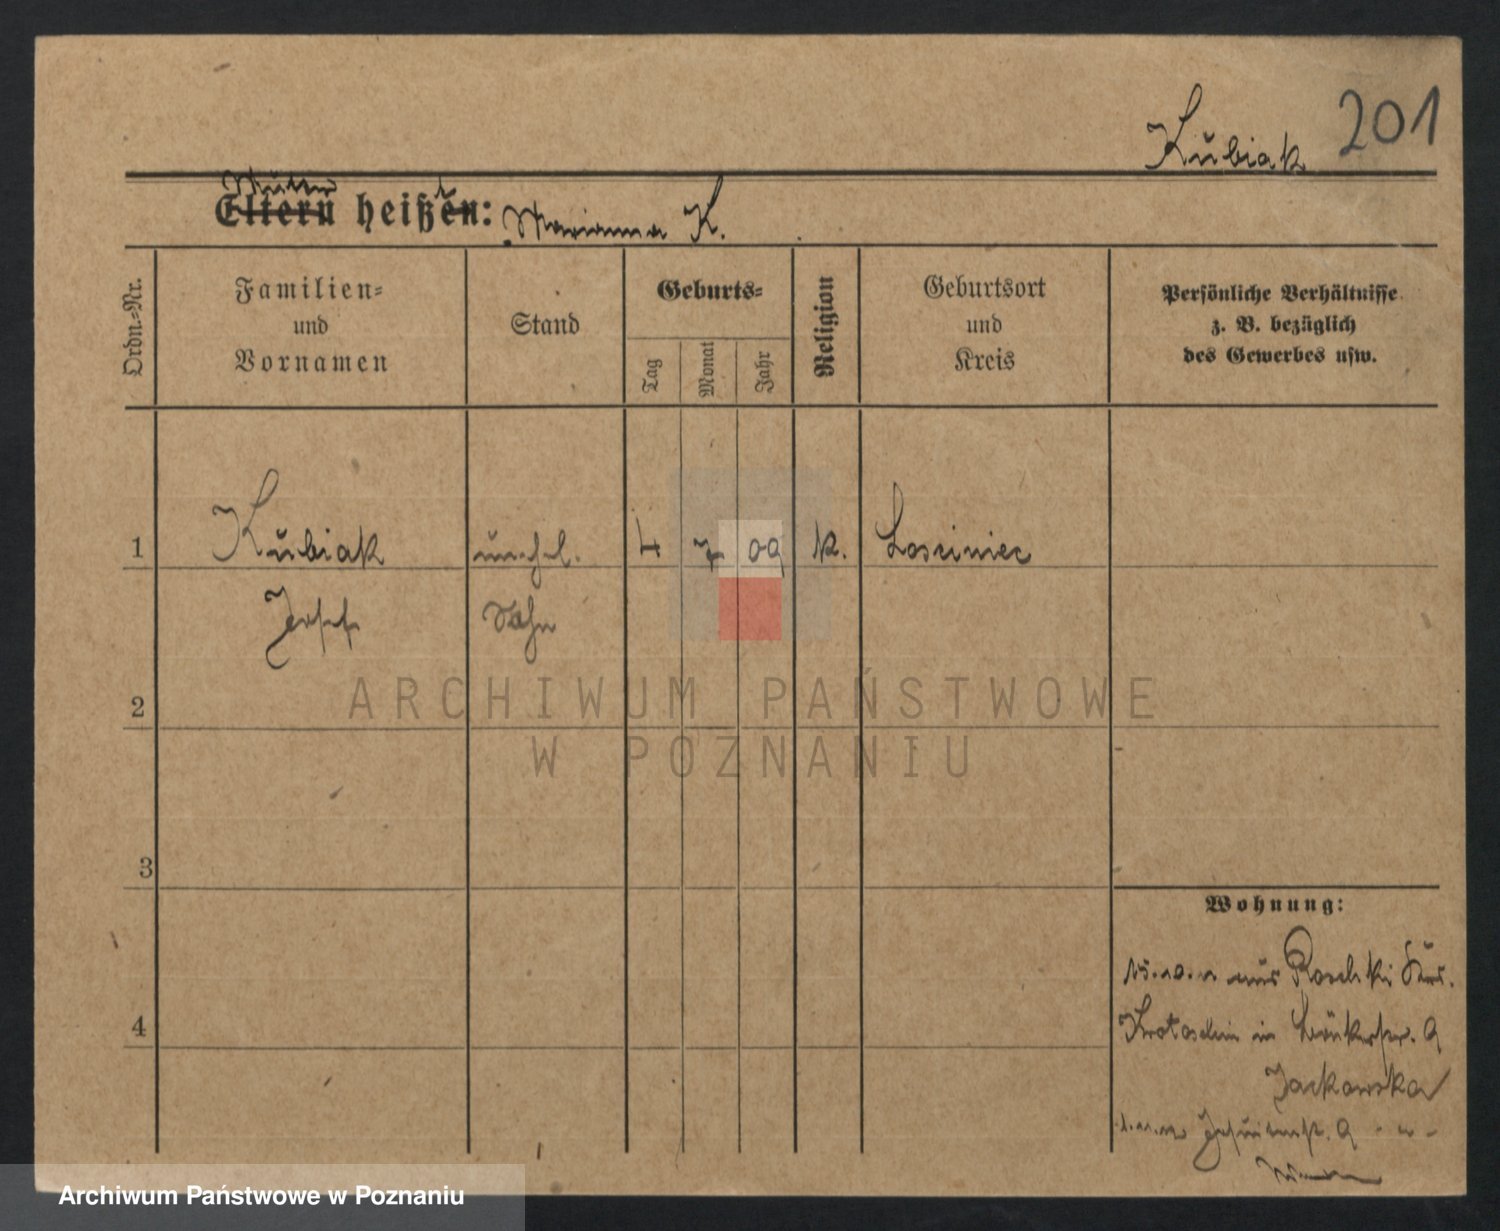 Kubiak 201
Mutter
Eltern heißen: Marianna K.
Ordn.=Nr.
Familien=
und
Vornamen
Stand
Geburts=
Tag
Monat
Jahr
Religion
Geburtsort
und
Kreis
Persönliche Verhältnisse
z. B. bezüglich
des Gewerbes usw.
1 Kubiak unehl. 4 7 09 k. Losciniec
Josef Sohn
2
ARCHIWUM PAŃSTWOWE
W POZNANIU
3
Wohnung:
aus Roschki Krs.
4
Krotoschin in 9
Jackowska
9
Archiwum Państwowe w Poznaniu